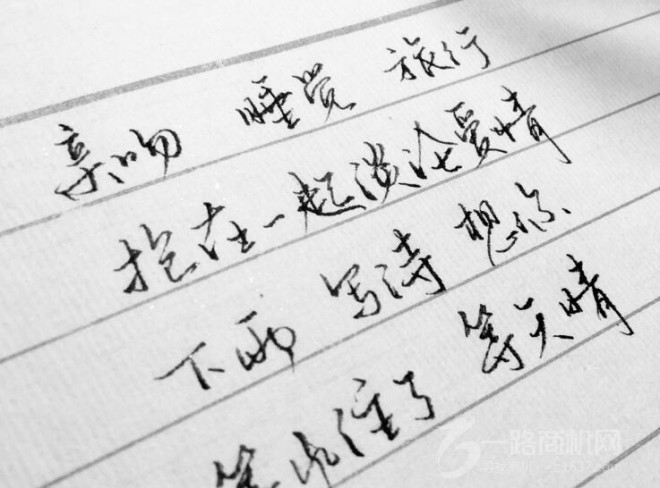 亲吻 睡觉 旅行
抱在一起谈论爱情
下雨 写诗 想你
笔记住了 等天晴
一路商机网